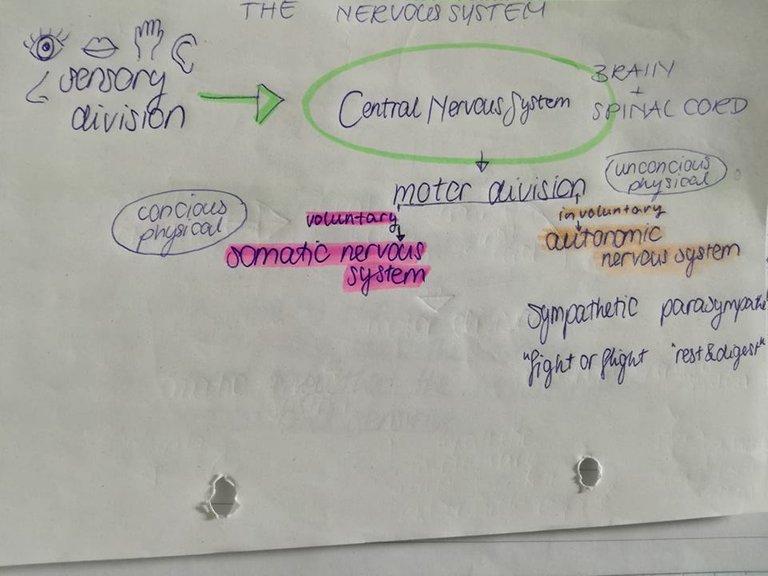 THE NERVOUS SYSTEM
sensory
division
Central Nervous System
BRAIN
+
SPINAL CORD
motor division
unconcious
physical
concious
physical
voluntary
somatic nervous
system
involuntary
autonomic
nervous system
sympathetic parasympathe
"fight or flight "rest & digest"